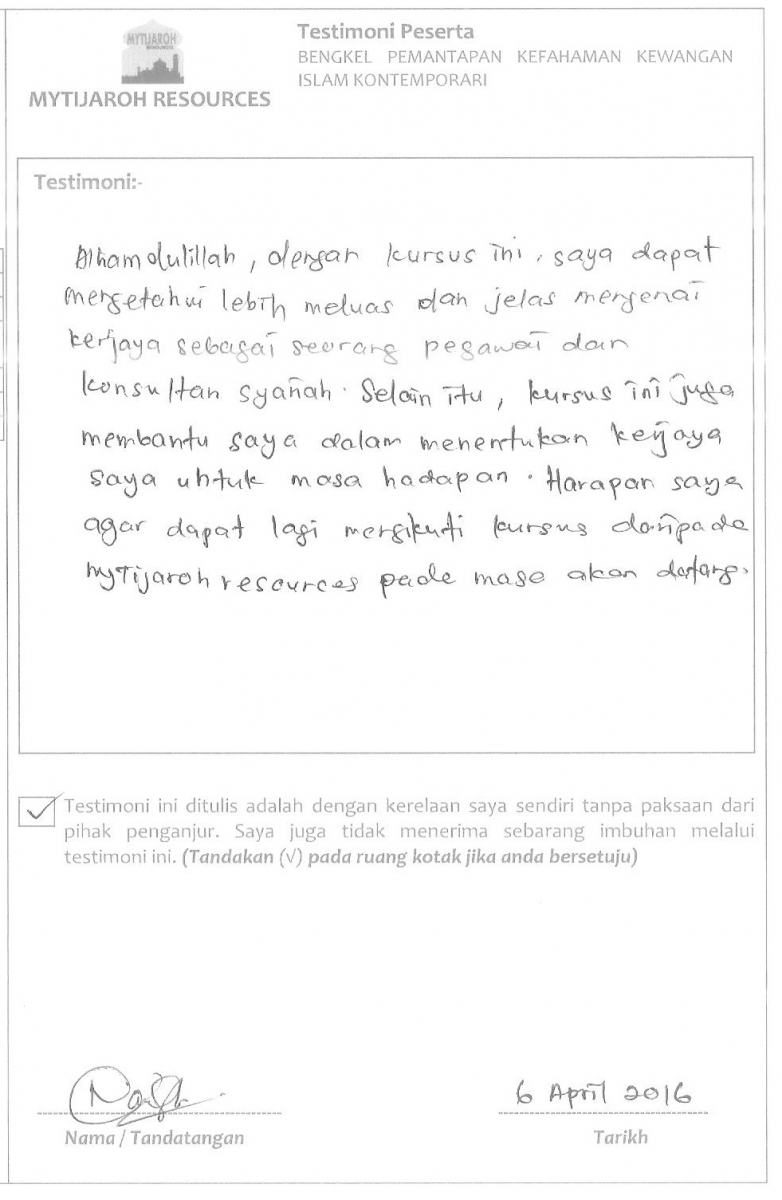 MYTIJAROH
RESOURCES
MYTIJAROH RESOURCES
Testimoni Peserta
BENGKEL PEMANTAPAN KEFAHAMAN KEWANGAN
ISLAM KONTEMPORARI
Testimoni:-
Alhamdulillah, dengan kursus ini, saya dapat
mengetahui lebih meluas dan jelas mengenai
kerjaya sebagai seorang pegawai dan
konsultan syariah. Selain itu, kursus ini juga
membantu saya dalam menentukan kerjaya
saya untuk masa hadapan. Harapan saya
agar dapat lagi mengikuti kursus daripada
myTijaroh resources pada masa akan datang.
Testimoni ini ditulis adalah dengan kerelaan saya sendiri tanpa paksaan dari
pihak penganjur. Saya juga tidak menerima sebarang imbuhan melalui
testimoni ini. (Tandakan (√) pada ruang kotak jika anda bersetuju)
6 April 2016
Nama / Tandatangan
Tarikh